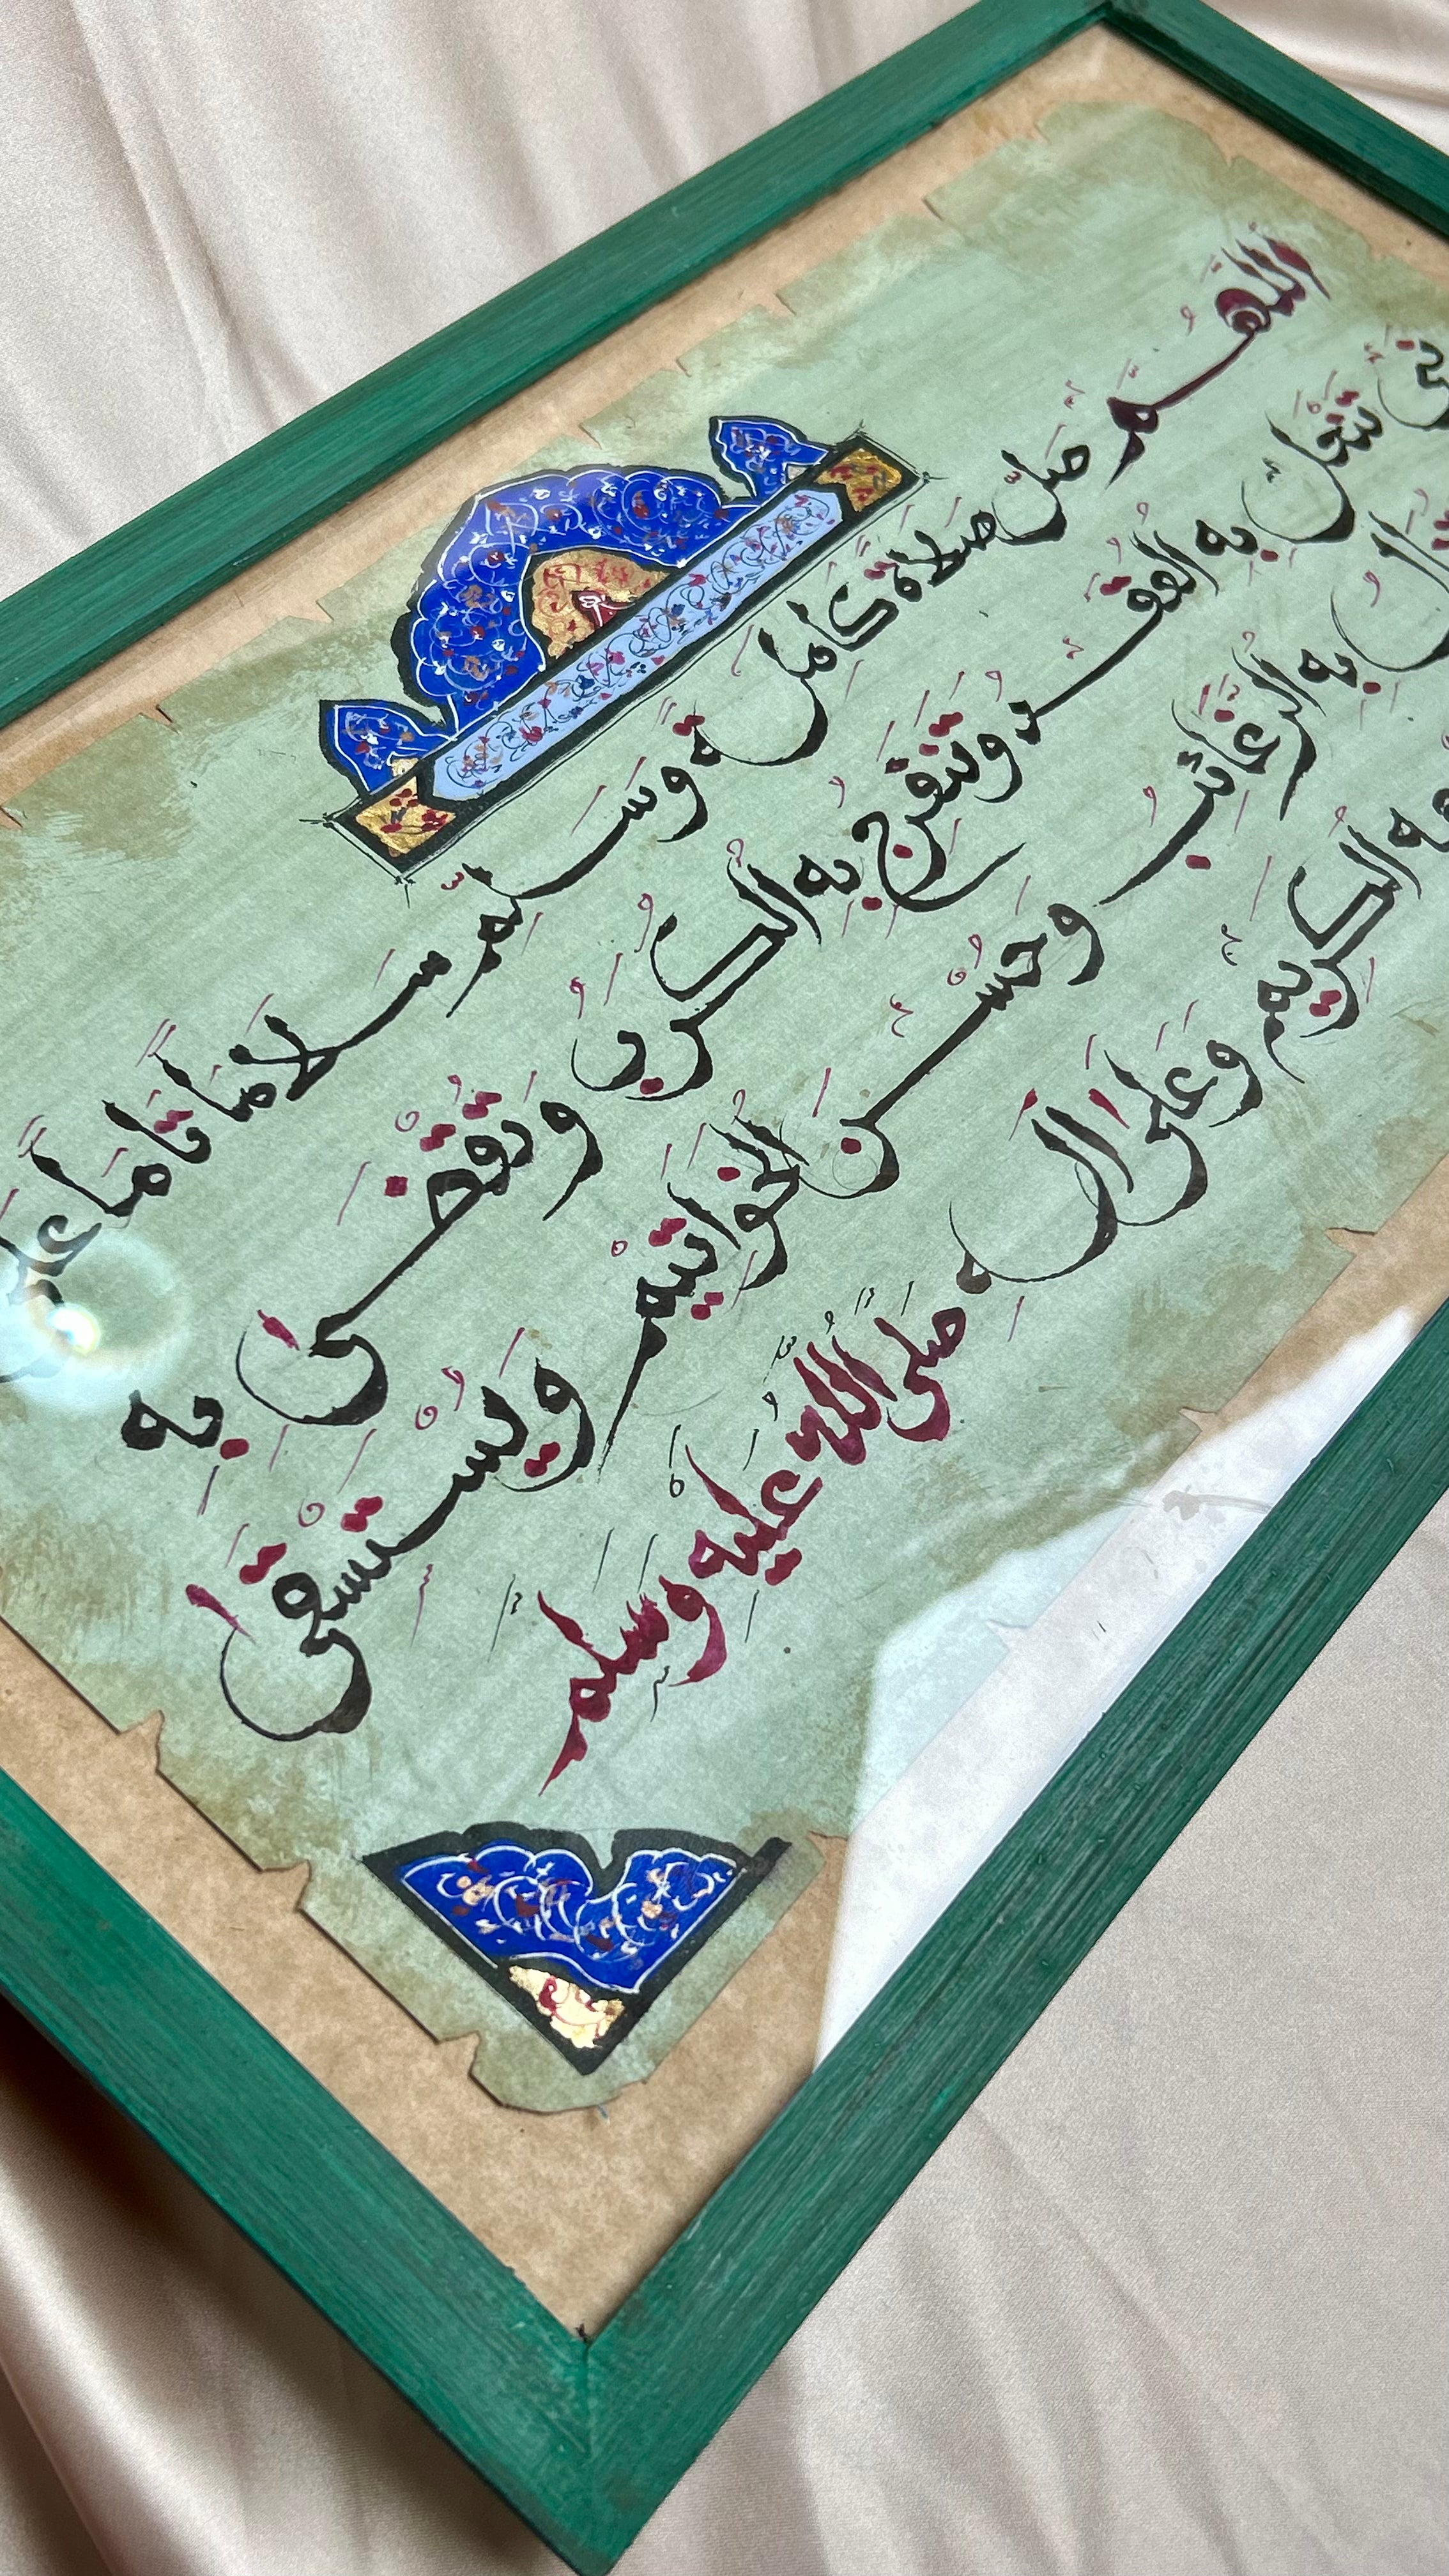 اللهم صل صلاة كاملة وسلم سلاما تاما
تنحل به العقد وتنفرج به الكرب وتقضى به
به الرغائب وحسن الخواتيم ويستسقى
الكريم وعلى اله صلى الله عليه وسلم